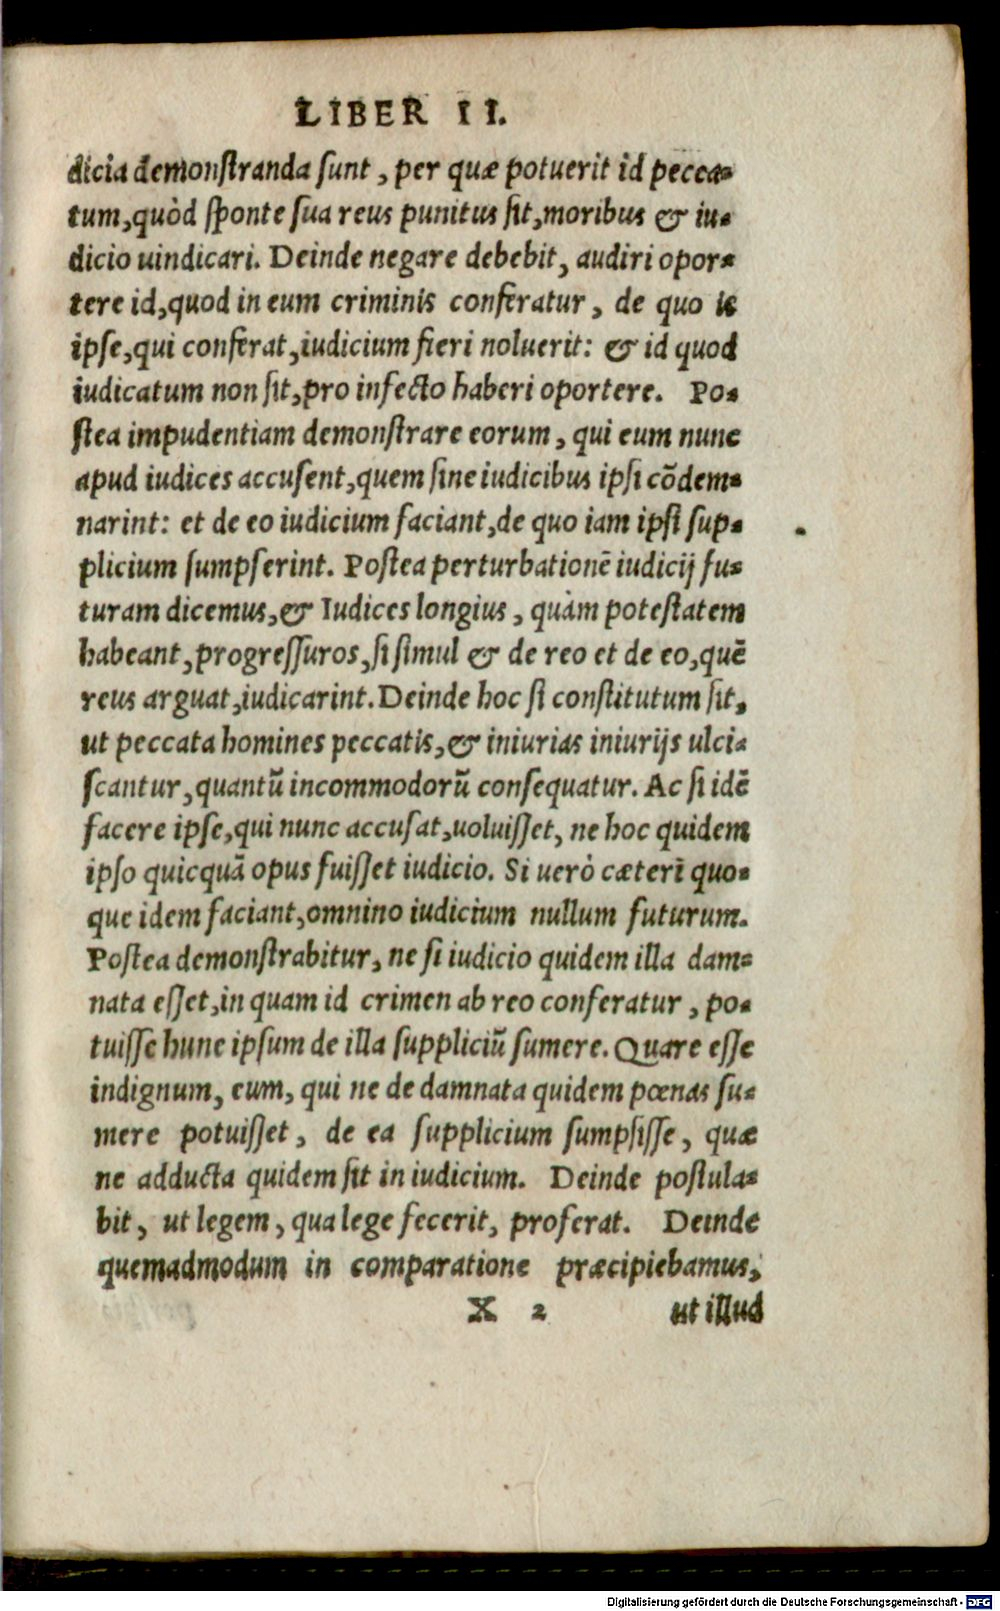 LIBER II.
dicia demonstranda sunt, per quæ potuerit id pecca-
tum, quòd sponte sua reus punitus sit, moribus & iu-
dicio uindicari. Deinde negare debebit, audiri opor-
tere id, quod in eum criminis conferatur, de quo is
ipse, qui conferat, iudicium fieri noluerit: & id quod
iudicatum non sit, pro infecto haberi oportere. Po-
stea impudentiam demonstrare eorum, qui eum nunc
apud iudices accusent, quem sine iudicibus ipsi cōdem-
narint: et de eo iudicium faciant, de quo iam ipsi sup-
plicium sumpserint. Postea perturbationē iudicij fu-
turam dicemus, & Iudices longius, quàm potestatem
habeant, progressuros, si simul & de reo et de eo, quē
reus arguat, iudicarint. Deinde hoc si constitutum sit,
ut peccata homines peccatis, & iniurias iniurijs ulci-
scantur, quantū incommodorū consequatur. Ac si idē
facere ipse, qui nunc accusat, uoluisset, ne hoc quidem
ipso quicquā opus fuisset iudicio. Si uerò cæteri quo-
que idem faciant, omnino iudicium nullum futurum.
Postea demonstrabitur, ne si iudicio quidem illa dam-
nata esset, in quam id crimen ab reo conferatur, po-
tuisse hunc ipsum de illa suppliciū sumere. Quare esse
indignum, eum, qui ne de damnata quidem pœnas su-
mere potuisset, de ea supplicium sumpsisse, quæ
ne adducta quidem sit in iudicium. Deinde postula-
bit, ut legem, qua lege fecerit, proferat. Deinde
quemadmodum in comparatione præcipiebamus,
X 2 ut illud
Digitalisierung gefördert durch die Deutsche Forschungsgemeinschaft - DFG